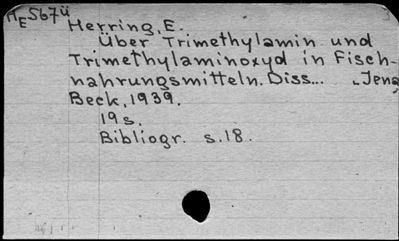 HE567ü
Herring, E.
Über Trimethylamin und
Trimethylaminoxyd in Fisch-
nahrungsmitteln. Diss... Jena,
Beck, 1939.
19 s.
Bibliogr. s.18.